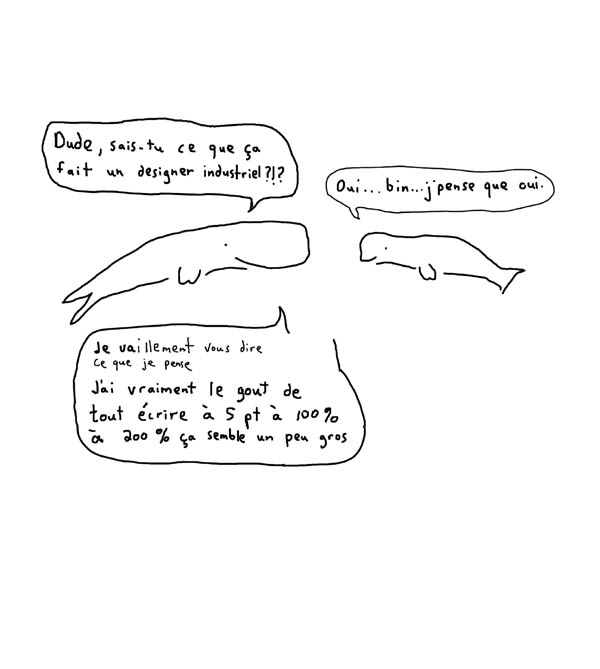 Dude, sais-tu ce que ça
fait un designer industriel?!?
Oui...bin...j'pense que oui.
Je vaillement vous dire
ce que je pense
J'ai vraiment le gout de
tout écrire à 5 pt à 100%
à 200% ça semble un peu gros